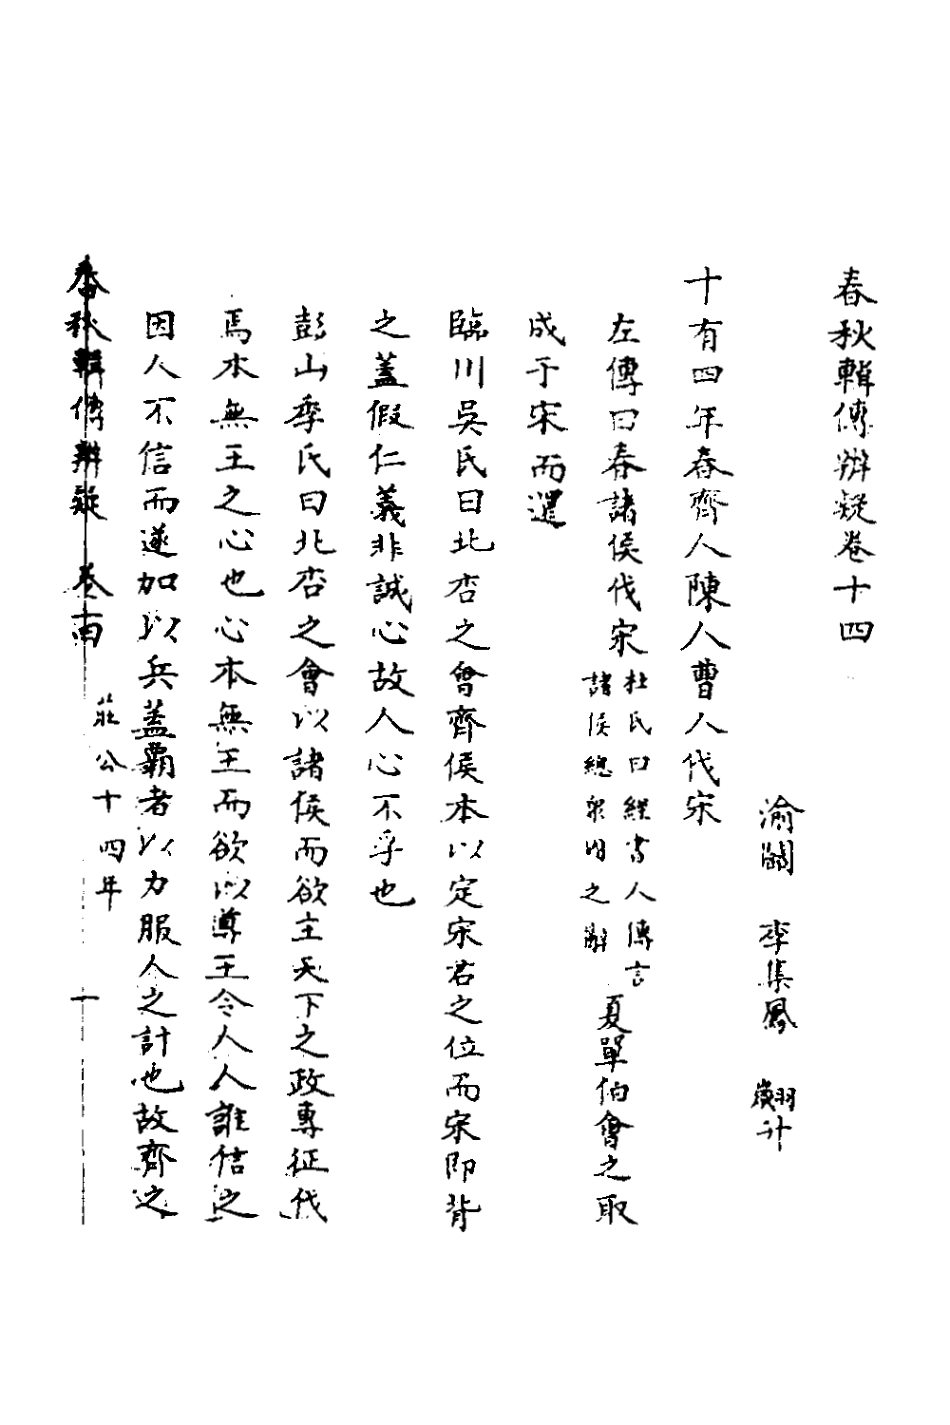 春秋輯傳辦疑卷十四
渝關 李集鳳 翽升
十有四年春齊人陳人曹人伐宋
左傳曰春諸侯伐宋杜氏曰經書人傳言諸侯總衆國之辭夏單伯會之取
成于宋而還
臨川吳氏曰北杏之會齊侯本以定宋君之位而宋卽背
之蓋假仁義非誠心故人心不孚也
彭山季氏曰北杏之會以諸侯而欲主天下之政專征伐
焉本無王之心也心本無王而欲以尊王令人人誰信之
因人不信而遂加以兵蓋霸者以力服人之計也故齊之
春秋輯傳辨疑 卷十四 莊公十四年 一